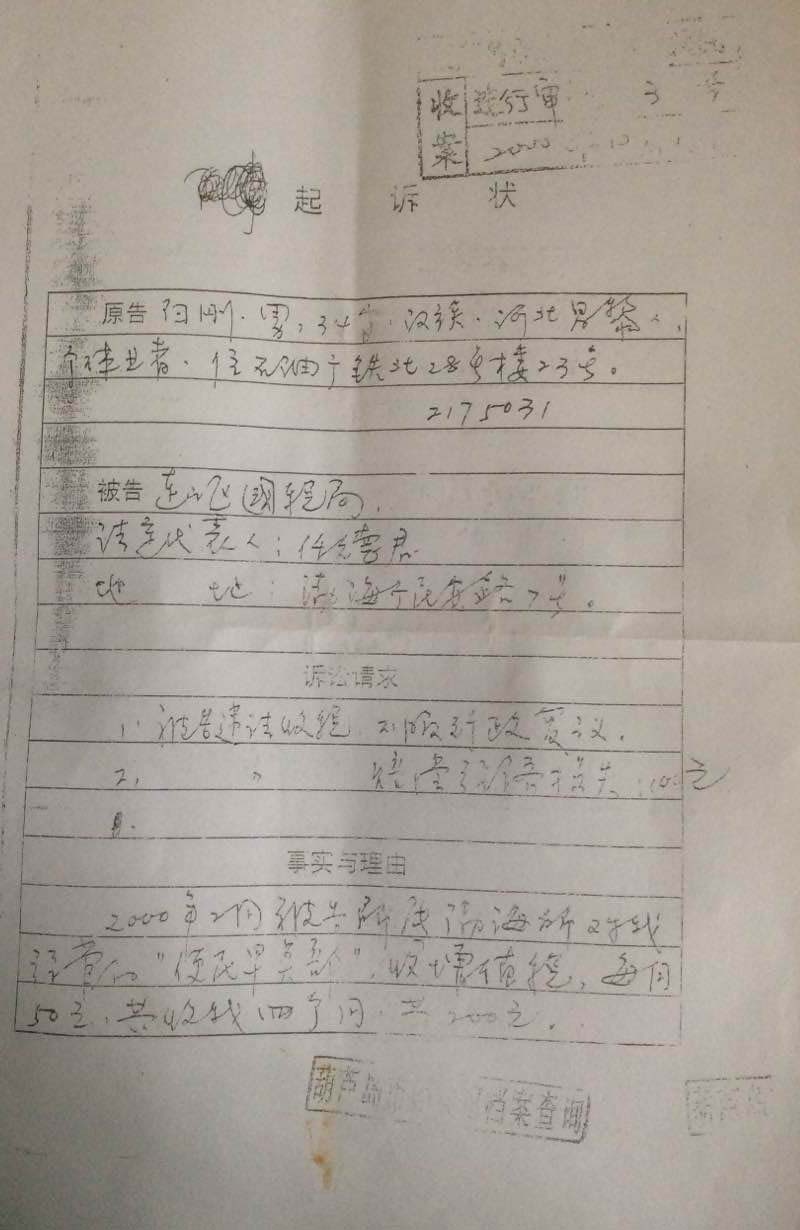 收案 行审 3 号
2000 10
起诉状
原告 刚、男，34岁、汉族、河北 人，
个体业者、住石油 铁北28号楼23号。
2175031
被告 国税局，
法定代表人：任 君
地 地：渤海 民安路7号。
诉讼请求
1、被告违法收税，不服行政复议。
2、 〃 赔偿经济损失 元
事实与理由
2000年2月被告所属渤海所对我
经营的“便民早点部”，收增值税，每月
50元、共收我四个月，共200元。
葫芦岛 档案查询